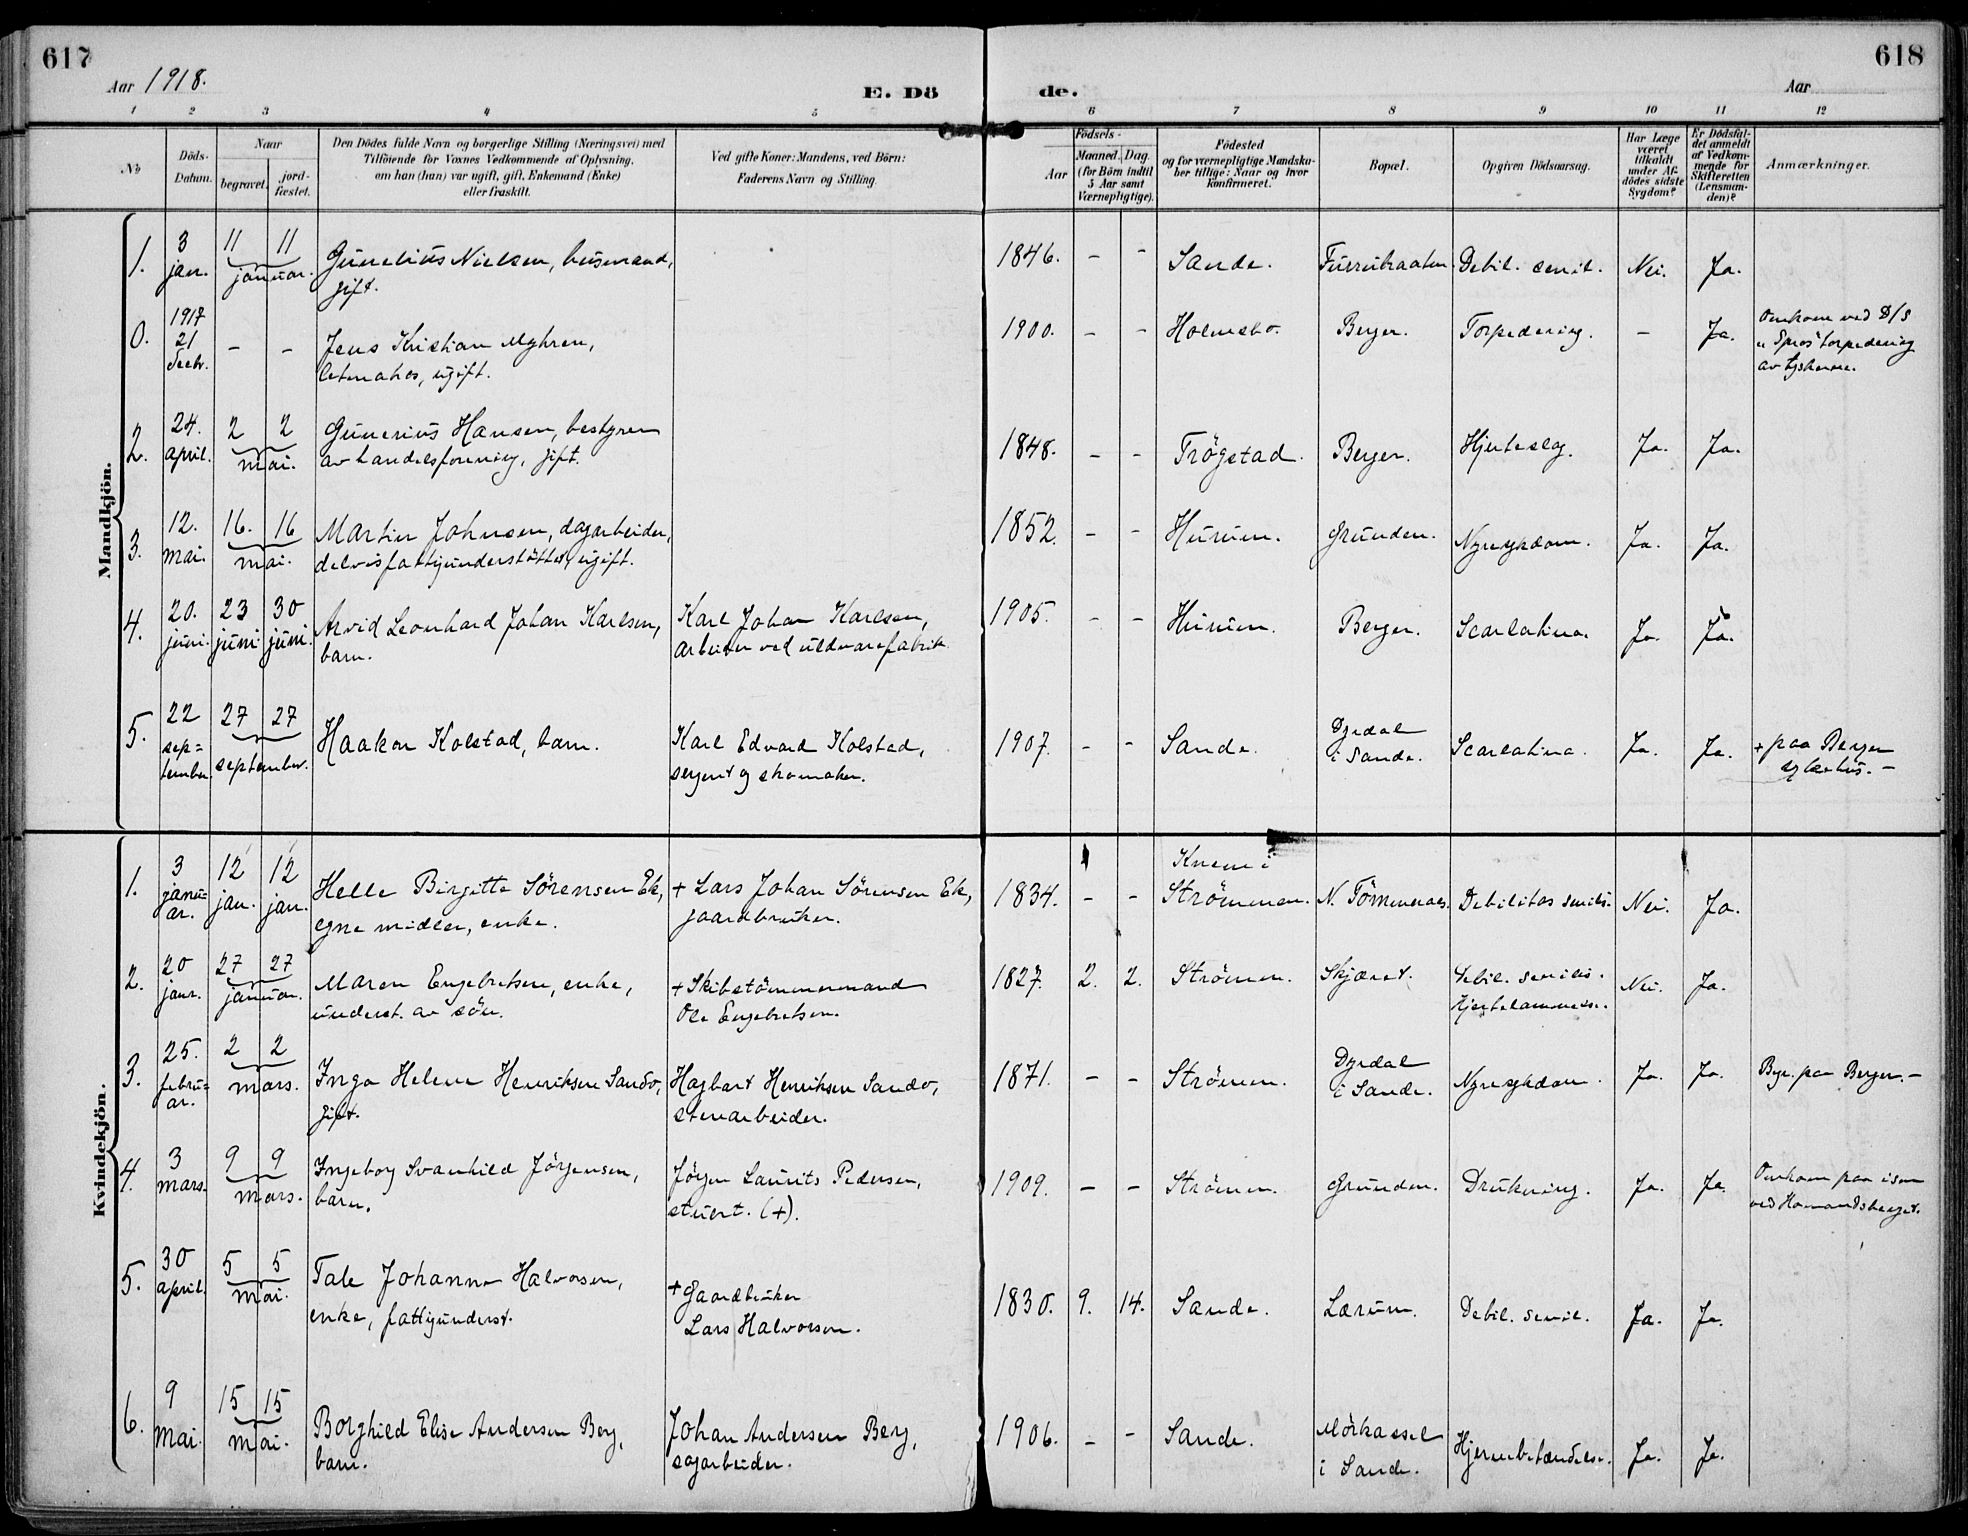 617
618
Aar 1918.
Aar
E. Dö
de.
1 2 3 4 5 6 7 8 9 10 11 12
No
Döds-
Datum.
Naar
begravet.
jord-
fæstet.
Den Dödes fulde Navn og borgerlige Stilling (Næringsvei) med
Tilföiende for Voxnes Vedkommende af Oplysning,
om han (hun) var ugift, gift, Enkemand (Enke)
eller fraskilt.
Ved gifte Koner: Mandens, ved Börn:
Faderens Navn og Stilling.
Födsels-
Aar
Maaned.
Dag.
(for Börn indtil
5 Aar samt
Værnepligtige).
Födested
og for værnepligtige Mandska-
ber tillige: Naar og hvor
konfirmeret.
Bopæl.
Opgiven Dödsaarsag.
Har Læge
været
tilkaldt
under Af-
dödes sidste
Sygdom?
Er Dödsfal-
det anmeldt
af Vedkom-
mende for
Skifteretten
(Lensman-
den)?
Anmærkninger.
Mandkjön.
1. 3 jan. 11 11 januar. Gunelius Nielsen, husmand, 1846. - - Sande. Debil. senil. Nei. Ja.
gift.
0. 1917 21 decbr. - - Jens Kristian Myhren, 1900. - - Holmsbo. Berger. Torpedering. - Ja. Omkom ved D/S
letmatros, ugift. "Spros" torpedering
av tyskerne.
2. 24. april. 2 2 mai. Gunerius Hansen, bestyrer 1848. - - Trögstad. Berger. Hjerteslag. Ja. Ja.
av handelsforening, gift.
3. 12. mai. 16. 16 mai. Martin Johnsen, dagarbeider, 1852. - - Hurum. Grunden. Nyresykdom. Ja. Ja.
delvis fattigunderstöttet, ugift.
4. 20. juni. 23 juni 30 juni. Arvid Leonhard Johan Karlsen, Karl Johan Karlsen, 1905. - - Hurum. Berger. Scarlatina. Ja. Ja.
barn. arbeider ved uldvarefabrik
5. 22 september. 27 27 september. Haakon Kolstad, barn. Karl Edvard Kolstad, 1907. - - Sande. Dyrdal Scarlatina. Ja. Ja. + paa Berger
sergent og skomaker. i Sande. sykehus. -
Kvindekjön.
1. 3 januar. 12 jan. 12 jan. Helle Birgitte Sörensen Ek, + Lars Johan Sörensen Ek, 1834. - - Knem i Strömmen. N. Tömmeraas. Debilitas senilis. Nei. Ja.
egne midler, enke. gaardbruker.
2. 20 janr. 27 27 januar. Maren Engebretsen, enke, + Skibstömmermand 1827. 2. 2. Strömm. Skjæret. Debil. senilis. Nei. Ja.
underst. av sön. Ole Engebretsen. Hjertelammelse.
3. 25. februar. 2 2 mars. Inga Helene Henriksen Sandö, Hagbart Henriksen Sandö, 1871. - - Strömm. Dyrdal Nyresykdom. Ja. Ja. Bgr. paa Berger. -
gift. stenarbeider. i Sande.
4. 3 mars. 9 9 mars. Ingeborg Svanhild Jörgensen, Jörgen Laurits Pedersen, 1909. - - Strömm. Grunden. Drukning. Ja. Ja. Omkom paa isen
barn. stuert. (+). ved
5. 30 april. 5 5 mai. Tale Johanne Halvorsen, + gaardbruker 1830. 9. 14. Sande. Lærum. Debil. senil. Ja. Ja.
enke, fattigunderst. Lars Halvorsen.
6. 9 mai. 15 15 mai. Borghild Elise Andersen Berg, Johan Andersen Berg, 1906. - - Sande. Mörkassel Hjernebetændelse. Ja. Ja.
barn. sagarbeider. i Sande.